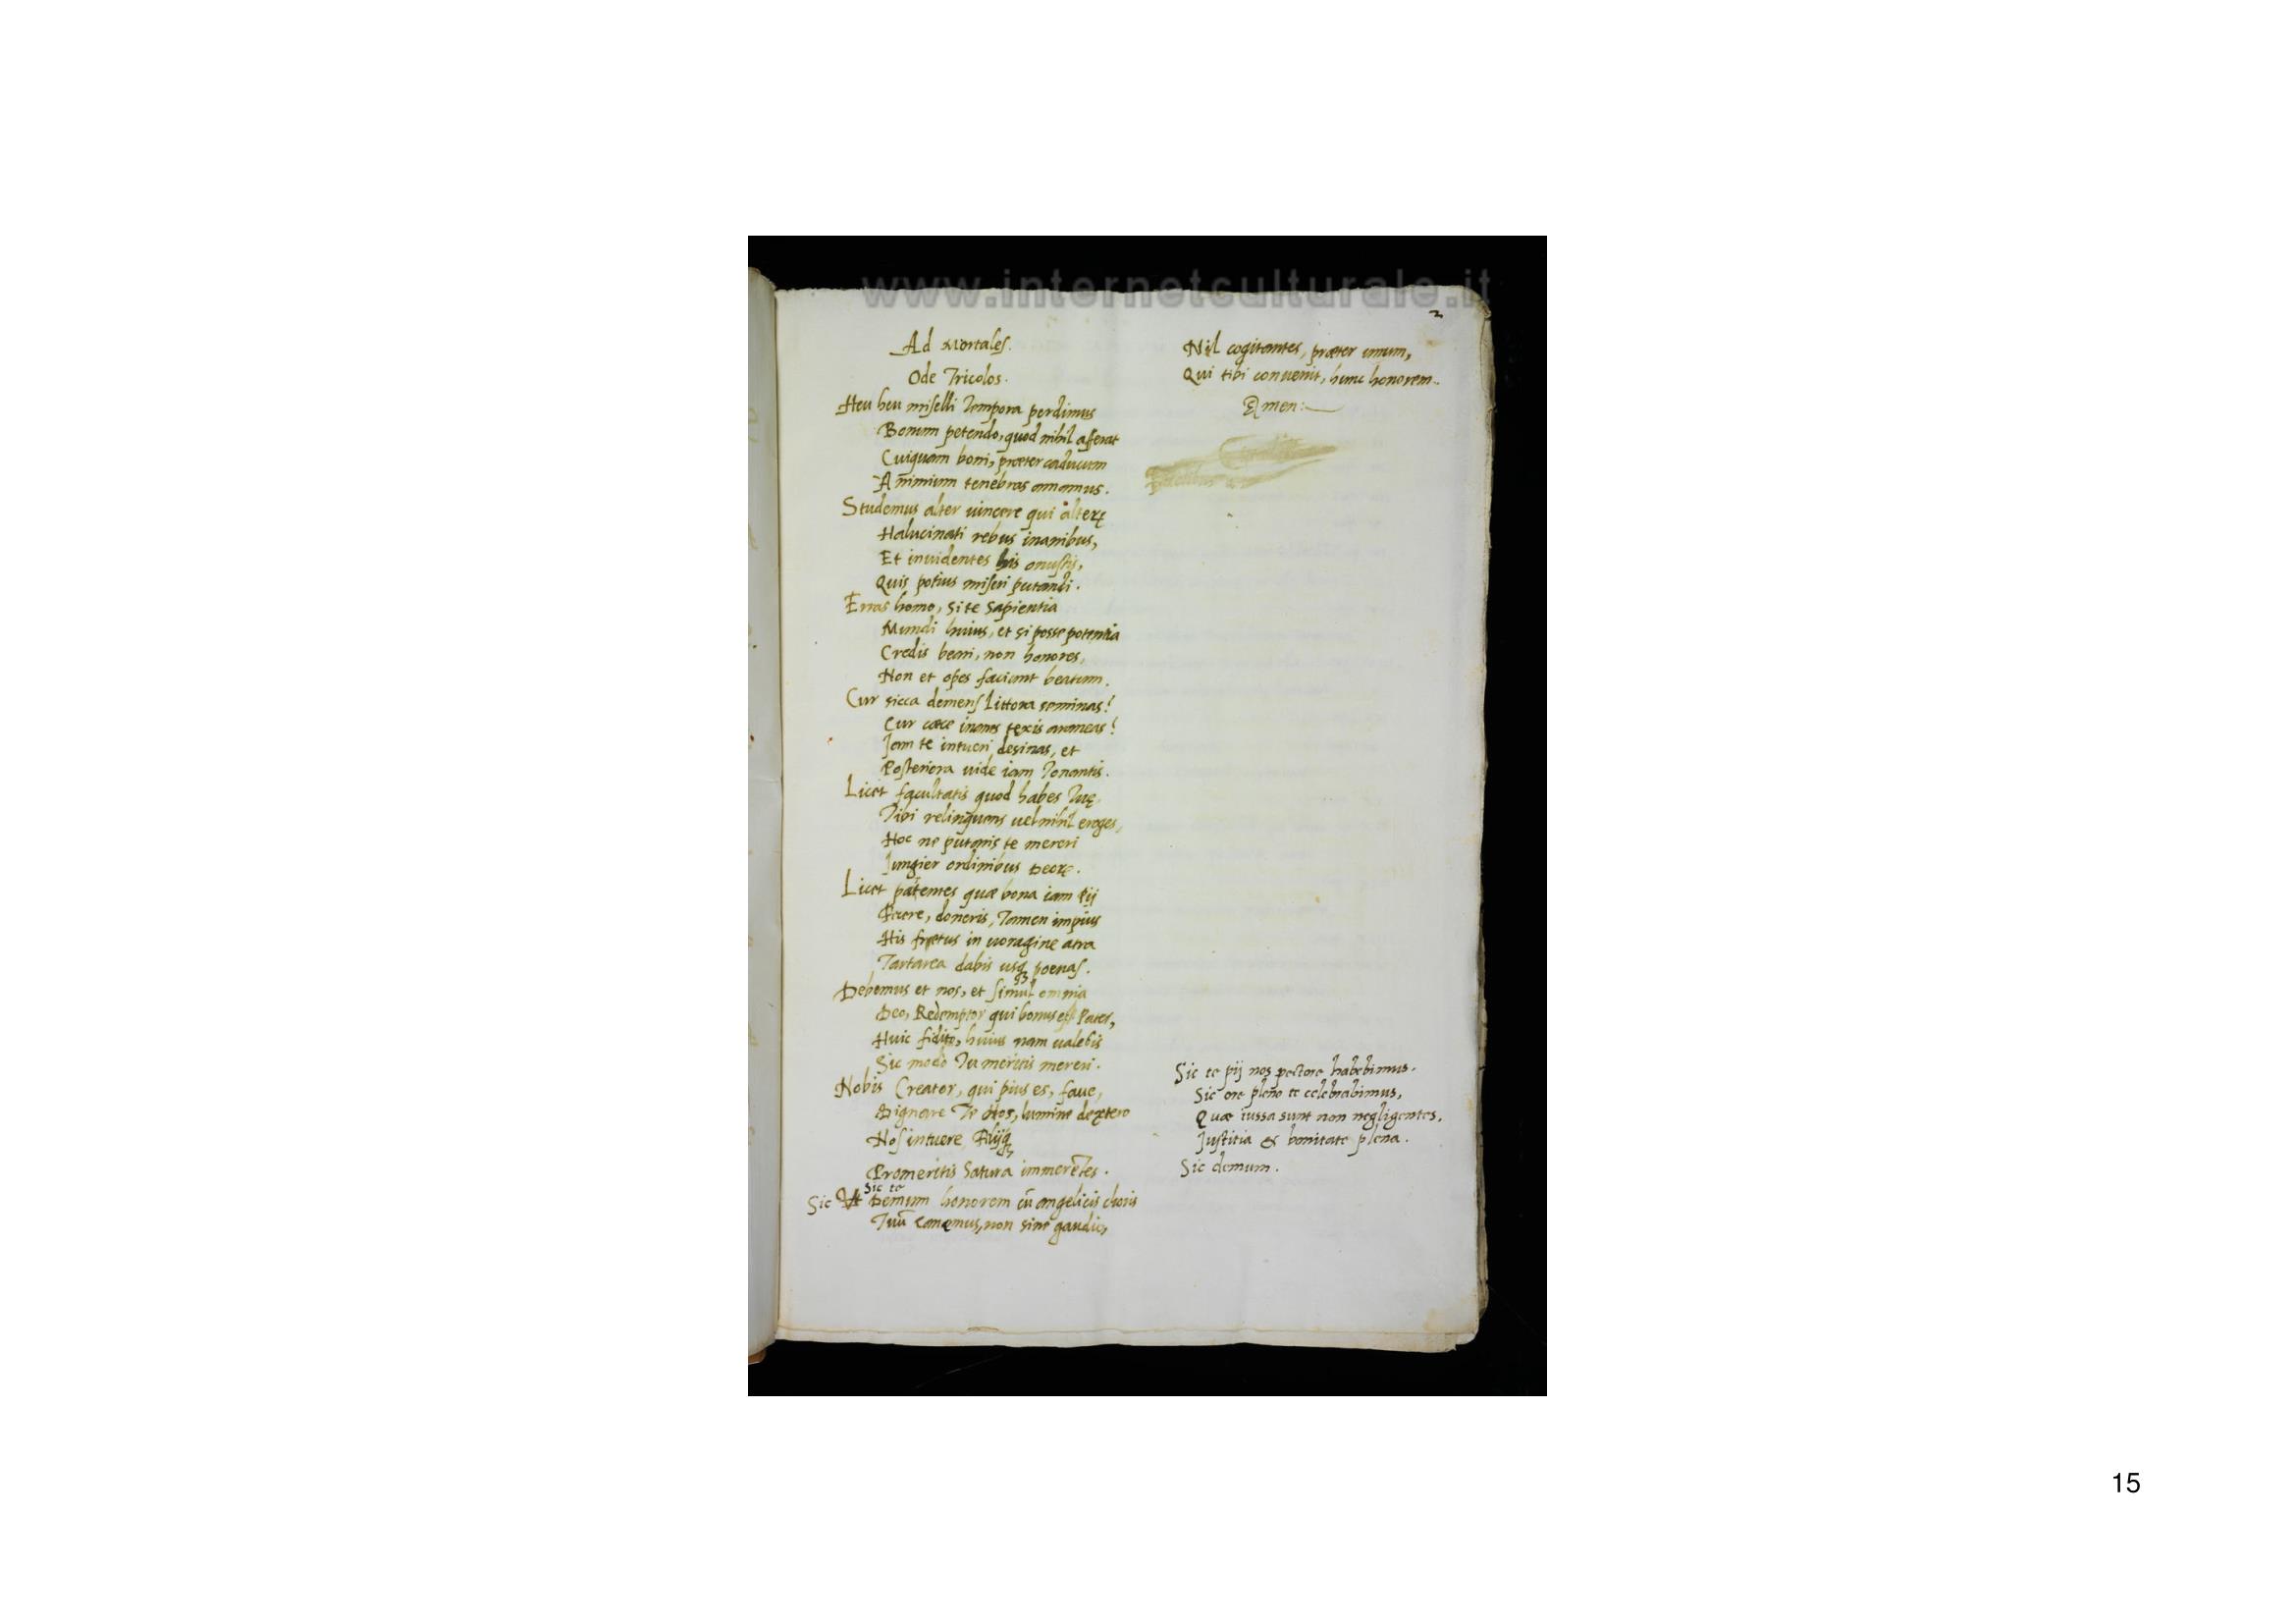 www.internetculturale.it
2
Ad Mortales.
Ode Tricolos.
Heu heu miselli Tempora perdimus
Bonum petendo, quod nihil afferat
Cuiquam boni, præter caducum
A nimium tenebras amamus.
Studemus alter vincere qui alterę
Halucinati rebus inanibus,
Et invidentes his onustis,
Quis potius miseri putandi.
Erras homo, si te sapientia
Mundi huius, et si posse potentia
Credis beari, non honores,
Non et opes faciunt beatum.
Cur sicca demens Littora seminas?
Cur cæce inanes texis araneas?
Jam te intueri desinas, et
Posteriora vide iam Tonantis.
Licet facultatis quod habes Tuę
Tibi relinquens vel nihil eroges,
Hoc ne putaris te mereri
Jungier ordinibus Deorę.
Licet patentes quæ bona iam Pij
Fecere, doneris, Tamen impius
His fretus in voragine atra
Tartarea dabis usq poenas.
Debemus et nos, et simul omnia
Deo, Redemptor qui bonus est Pater,
Huic fidito, huius nam valebis
Sic modo Tu meritis mereri.
Nobis Creator, qui pius es, fave,
Dignare Te nos, lumine dextero
Nos intuere Filijq
Promeritis satura immerētes.
Sic te
Sic Ut Demum honorem cū angelicis choris
Tuū canemus, non sine gaudio,
Nil cogitantes, præter unum,
Qui tibi convenit, hunc honorem.
Amen:
Sic te pij nos pectore habebimus.
Sic ore pleno te celebrabimus,
Quæ iussa sunt non negligentes.
Justitia & bonitate plena.
Sic demum.
15